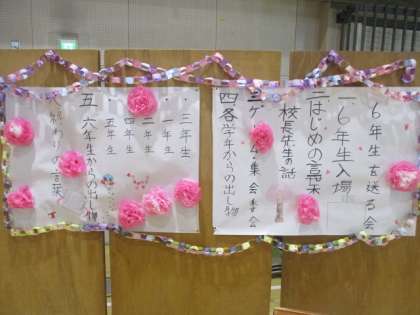 6年生を送る会
一6年生入場
二はじめの言葉
校長先生の話
三ゲーム・集会委員会
四各学年からの出し物
・三年生
・一年生
・二年生
・四年生
・五年生
五六年生からの出し物
終わりの言葉